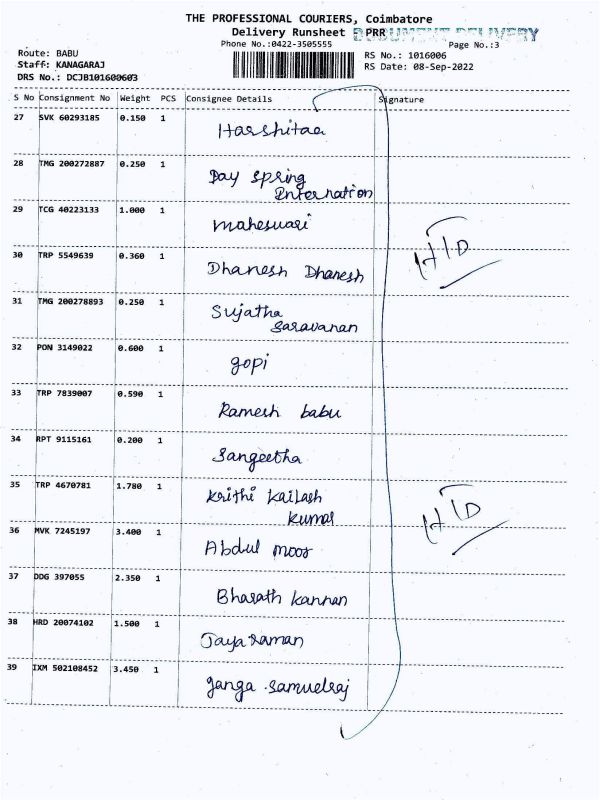 THE PROFESSIONAL COURIERS, Coimbatore
Delivery Runsheet PRR DOCUMENT DELIVERY
Phone No.:0422-3505555 Page No.:3
Route: BABU RS No.: 1016006
Staff: KANAGARAJ RS Date: 08-Sep-2022
DRS No.: DCJB101600603
S No Consignment No Weight PCS Consignee Details Signature
27 SVK 60293185 0.150 1 Harshitaa
28 TMG 200272887 0.250 1 Day spring
Internation
29 TCG 40223133 1.000 1 maheswari
30 TRP 5549639 0.360 1 Dhanesh Dhanesh
HTD
31 TMG 200278893 0.250 1 Sujatha
Saravanan
32 PON 3149022 0.600 1 gopi
33 TRP 7839007 0.590 1 Ramesh babu
34 RPT 9115161 0.200 1 Sangeetha
35 TRP 4670781 1.780 1 Krithi Kailash
kumar
HTD
36 MVK 7245197 3.400 1 Abdul moor
37 DDG 397055 2.350 1 Bharath kannan
38 HRD 20074102 1.500 1 Jayaraman
39 IXM 502108452 3.450 1 ganga samuelraj